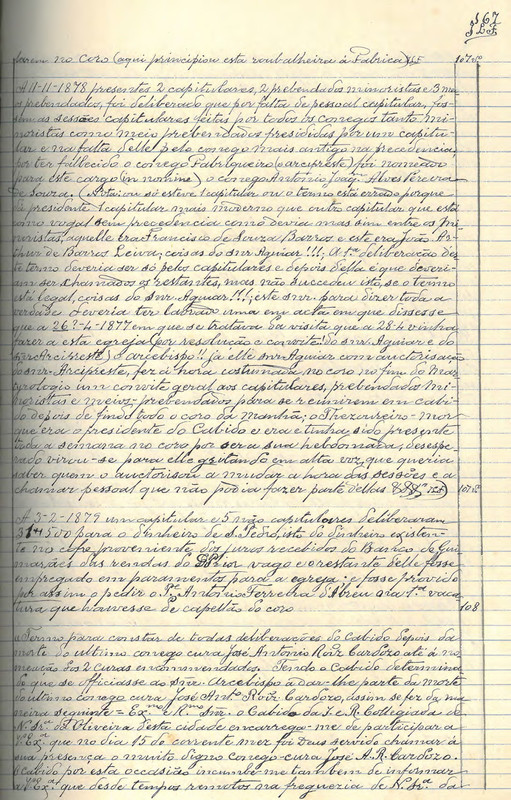 167
barem no Coro (aqui principiou esta roubalheira á Fabrica)
107 vo
A 11-11-1878 presentes 2 capitulares, 2 prebendados minoristas e 3 meios
prebendados, foi deliberado que por falta de pessoal capitular, fos-
sem as sessões capitulares feitas por todos os conegos tanto mi-
noristas como meio prebendados presididas por um capitu-
lar e na falta d'elle pelo conego mais antigo na precedencia;
por ter fallecido o conego Fabriqueiro (arcipreste) foi nomeado
para este cargo (in nomine) o conego António Joaqm Alves Pereira
de Souza. (Nota: ou só esteve 1 capitular ou o termo está errado porque
foi presidente 1 capitular mais moderno que outro capitular que está
como vogal sem precedencia como devia mas sim entre os Mi-
noristas, aquelle era Francisco de Souza Barros e este era João Ar-
thur de Barros Leiva; coisas do snr Aguiar!!!; A 1.ª deliberação des-
te termo deveria ser só pelos capitulares e depois d'ella é que deveri-
am ser chamados os restantes, mas não succedeu isto, se o termo
está legal, coisas do snr. Aguiar!!!; este snr. para dizer toda a
verdade deveria ter labrado uma em acta em que dissesse
que a 26?-4-1877 em que se tratava da visita que a 28-4 vinha
fazer a esta egreja (por resolução e convite do snr Aguiar e do
snr Arcipreste) o arcebispo!! já elle snr Aguiar com auctorisação
do snr. Arcipreste, fez á hora costumada no coro no fim do Mar-
tyrologio um convite geral aos capitulares, prebendados Mi-
noristas e meios-prebendados para se reunirem em cabi-
do depois de findo todo o coro da manhã; o Thezoureiro-mor
que era o presidente do Cabido e era e tinha sido presente
toda a semana no coro por ser a sua hebdomada, desespe-
rado virou-se para elle gritando em alta voz que queria
saber quem o auctorisou a mudar a hora das sessões e a
chamar pessoal que não podia fazer parte dellas
107 vo
A 3-2-1879 um capitular e 5 não capitulares deliberaram
314500 para o dinheiro de S. Pedro, isto do dinheiro existen-
te no cofre proveniente dos juros recebidos do Banco de Gui-
marães das rendas do vago e o restante delle fosse
empregado em paramentos para a egreja; e fosse provido
por assim o pedir o Pe António Ferreira d'Abreu na 1.ª vaca-
tura que houvesse de capellão do coro
108
a Termo para constar de todas deliberações do Cabido depois da
morte do ultimo conego cura José Antonio Roiz Cardozo até á no-
meação dos 2 Curas encommendados. Tendo o Cabido determina-
do que se officiasse ao Snr. Arcebispo a dar-lhe parte da morte
do ultimo conego cura José Anto Roiz Cardozo, assim se fez da ma-
neira seguinte = Exmo Rmo Snr. o Cabido da I. e R. Collegiada de
N. Sra d'Oliveira d'esta cidade encarrega-me de participar a
V. Exª. que no dia 15 do corrente mez foi Deus servido chamar á
sua presença o muito digno conego-cura José A. R. Cardozo.
O Cabido por esta occasião incumbe-me tambem de informar
a V. Exª. que desde tempos remotos na freguezia de N. Sra da